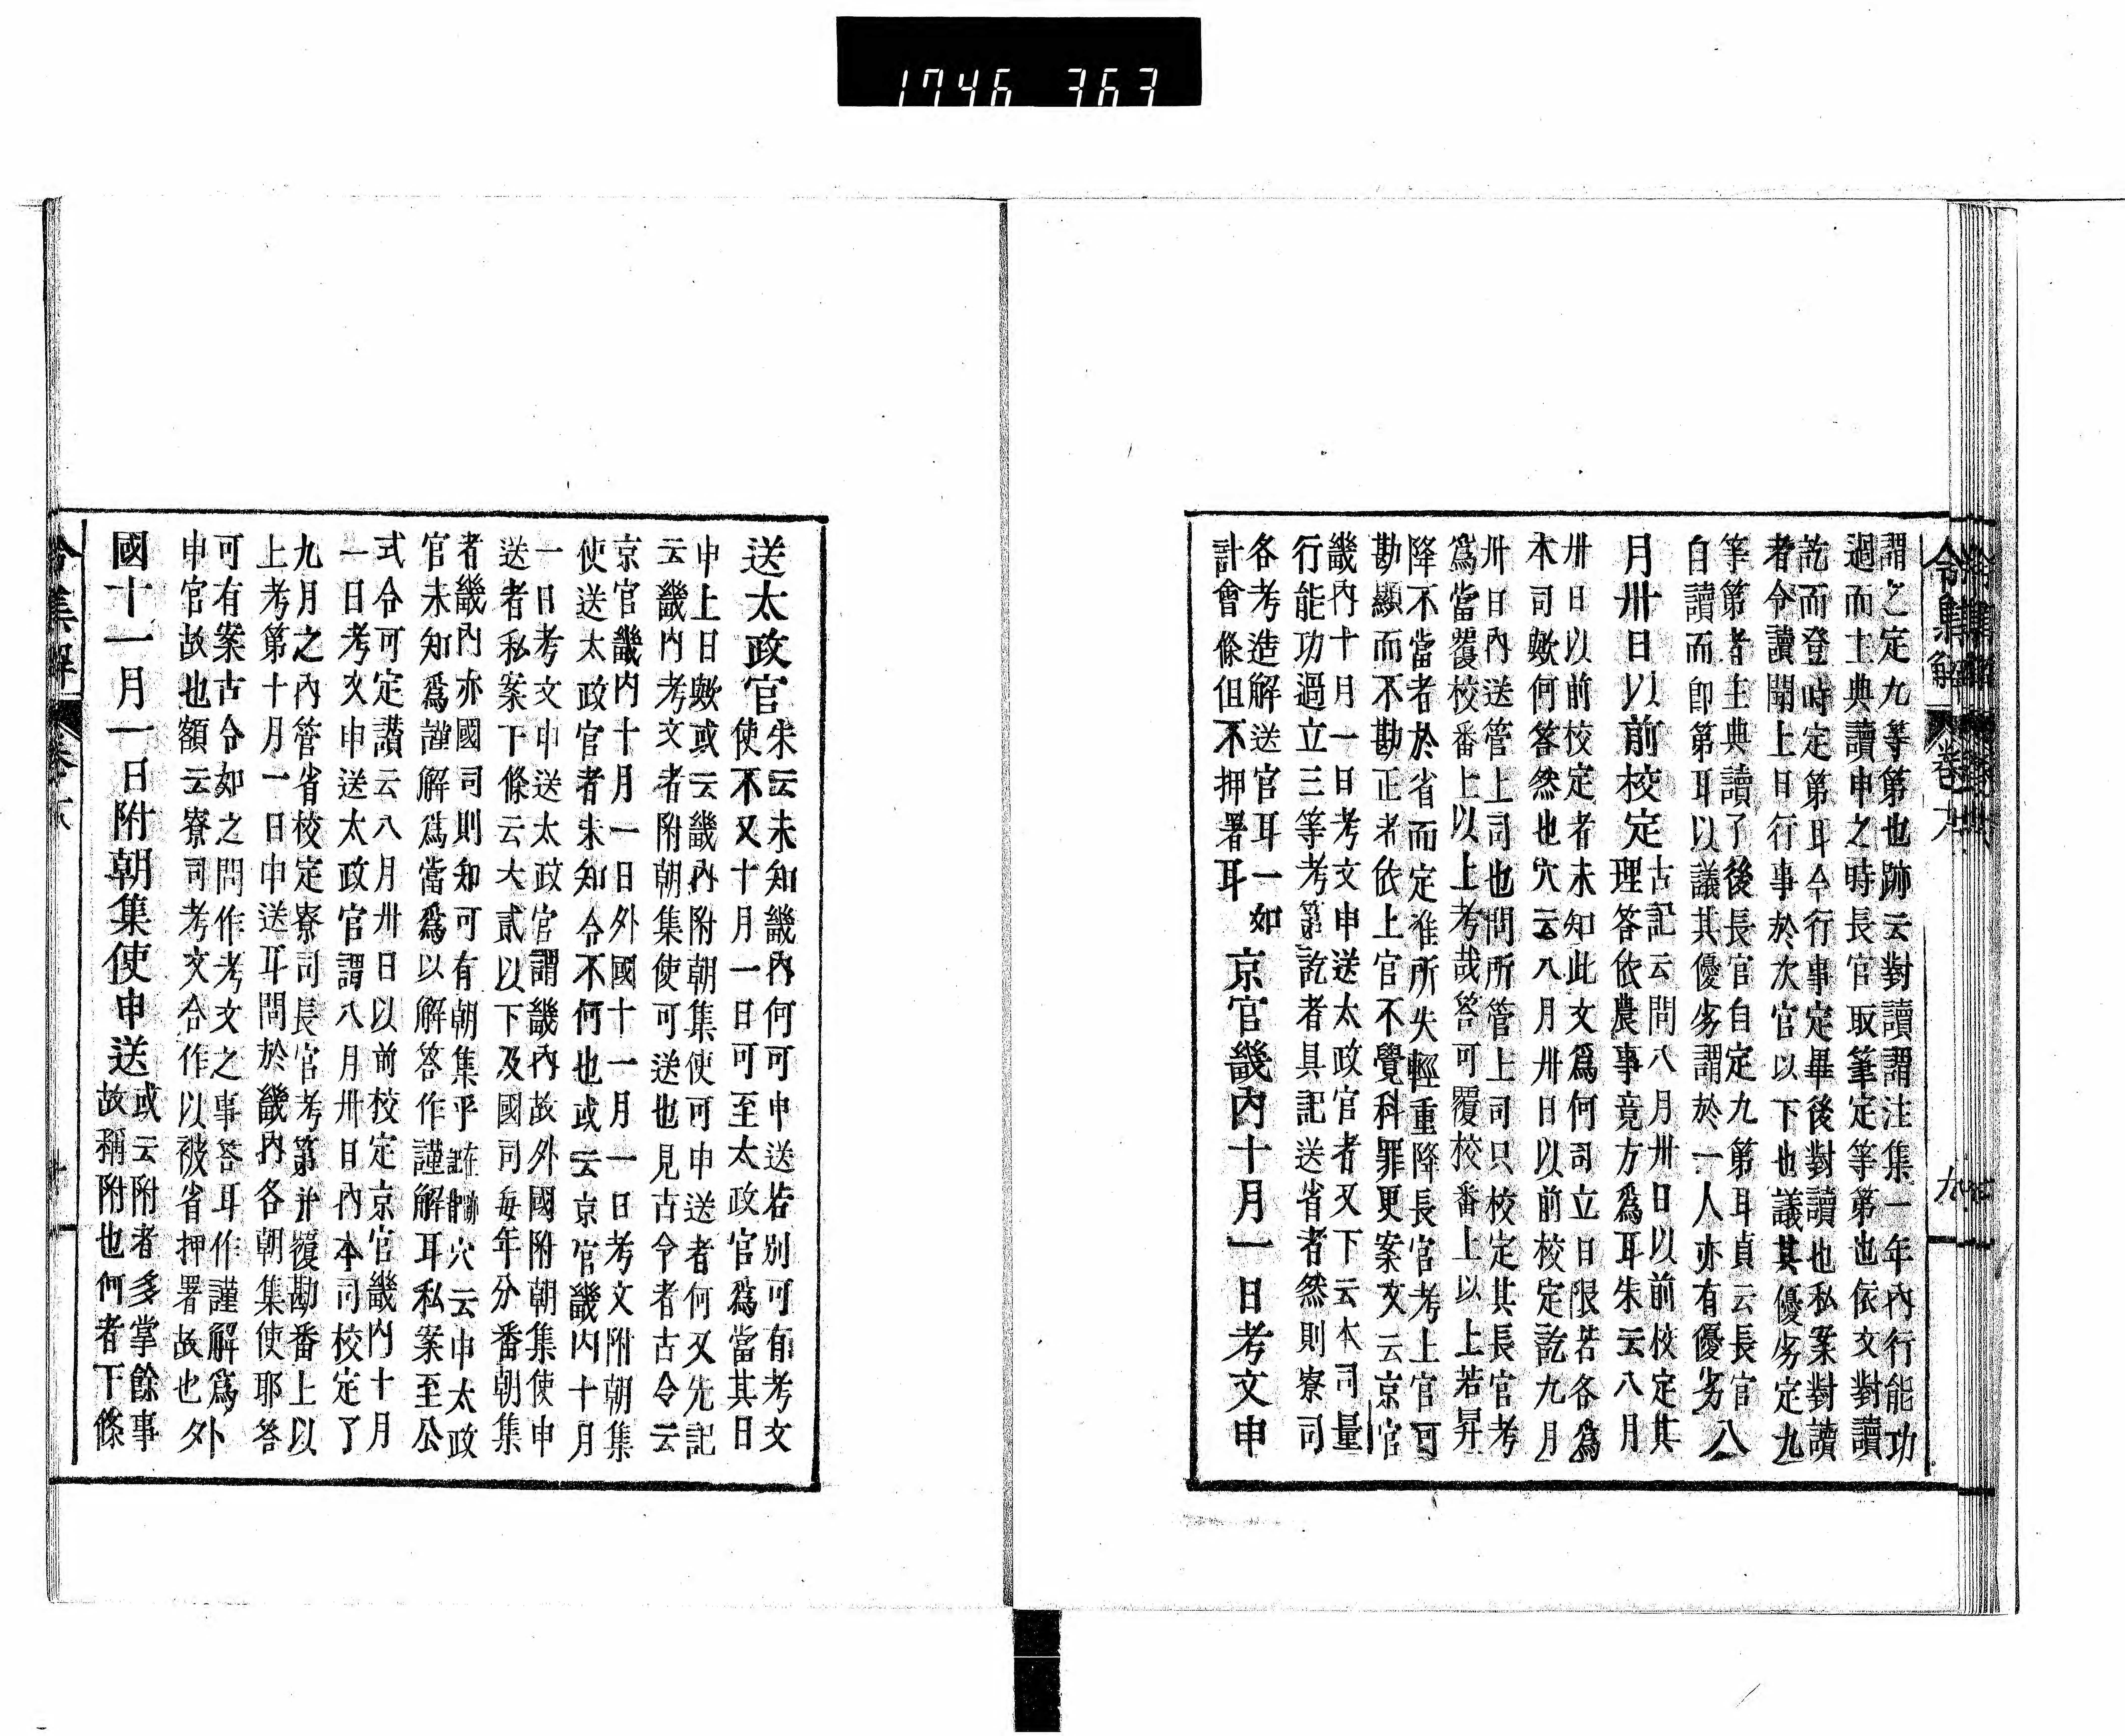 1746 363
令集解 卷六
謂之定九等第也跡云對讀謂注集一年內行能功
過而主典讀申之時長官取筆定等第也依文對讀
訖而登時定第耳今行事定畢後對讀也私案對讀
者令讀聞上日行事於次官以下也議其優劣定九
等第者主典讀了後長官自定九第耳貞云長官
自讀而即第耳以議其優劣謂於一人亦有優劣 八
月卅日以前校定
古記云問八月卅日以前校定其
理答依農事竟方爲耳朱云八月
卅日以前校定者未知此文爲何司立日限若各爲
本司歟何答然也穴云八月卅日以前校定訖九月
卅日內送管上司也問所管上司只校定其長官考
爲當覆校番上以上考哉答可覆校番上以上若昇
降不當者於省而定准所失輕重降長官考上官可
勘顯而不勘正者依上官不覺科罪更案文云京官
畿內十月一日考文申送太政官者又下云本司量
行能功過立三等考第訖者具記送省者然則寮司
各考造解送官耳一如
計會條但不押署耳
京官畿內十月一日考文申
送太政官
朱云未知畿內何可申送若別可有考文
使不又十月一日可至太政官爲當其日
申上日歟或云畿內附朝集使可申送者何又先記
云畿內考文者附朝集使可送也見古令者古令云
京官畿內十月一日外國十一月一日考文附朝集
使送太政官者未知令不何也或云京官畿內十月
一日考文申送太政官謂畿內故外國附朝集使申
送者私案下條云大貳以下及國司每年分番朝集
者畿內亦國司則知可有朝集乎 穴云申太政
官未知爲謹解爲當爲以解答作謹解耳私案至公
式令可定讚云八月卅日以前校定京官畿內十月
一日考文申送太政官謂八月卅日內本司校定了
九月之內管省校定寮司長官考第并覆勘番上以
上考第十月一日申送耳問於畿內各朝集使耶答
可有案古令如之問作考文之事答耳作謹解爲外
申官故也額云寮司考文合作以被省押署故也 外
國十一月一日附朝集使申送
或云附者多掌餘事
故稱附也何者下條
令集解 卷六